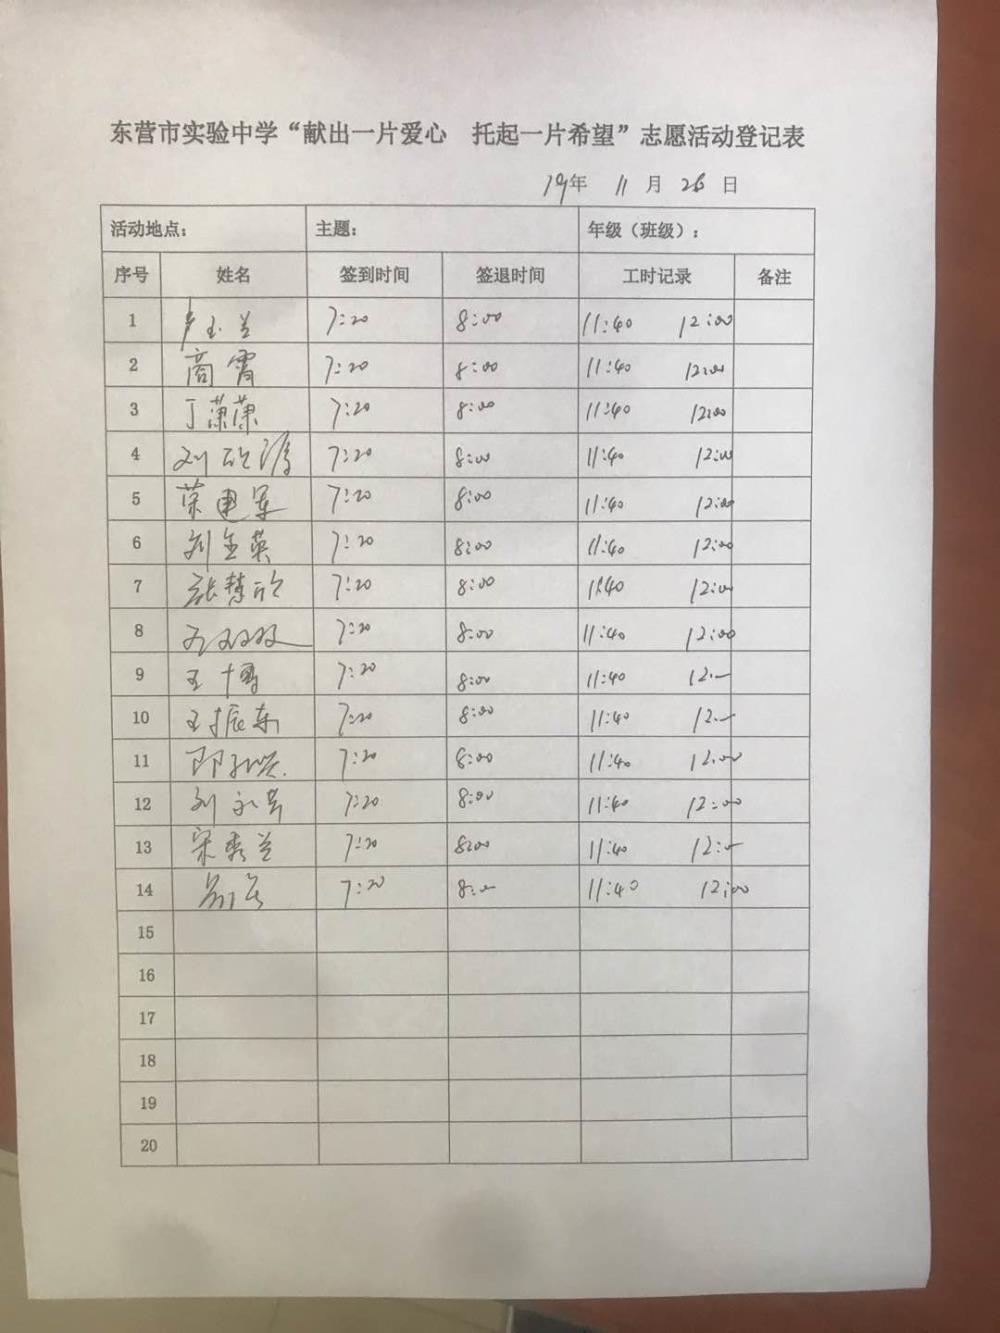 东营市实验中学“献出一片爱心 托起一片希望”志愿活动登记表
19年 11月 26日
活动地点： 主题： 年级（班级）：
序号 姓名 签到时间 签退时间 工时记录 备注
1 卢玉兰 7:20 8:00 11:40 12:00
2 商霄 7:20 8:00 11:40 12:00
3 丁潇潇 7:20 8:00 11:40 12:00
4 刘 7:20 8:00 11:40 12:00
5 荣建军 7:20 8:00 11:40 12:00
6 刘金英 7:20 8:00 11:40 12:00
7 张慧欣 7:20 8:00 11:40 12:00
8 7:20 8:00 11:40 12:00
9 王博 7:20 8:00 11:40 12:00
10 王振东 7:20 8:00 11:40 12:00
11 7:20 8:00 11:40 12:00
12 刘永芳 7:20 8:00 11:40 12:00
13 宋秀兰 7:20 8:00 11:40 12:00
14 7:20 8:00 11:40 12:00
15
16
17
18
19
20